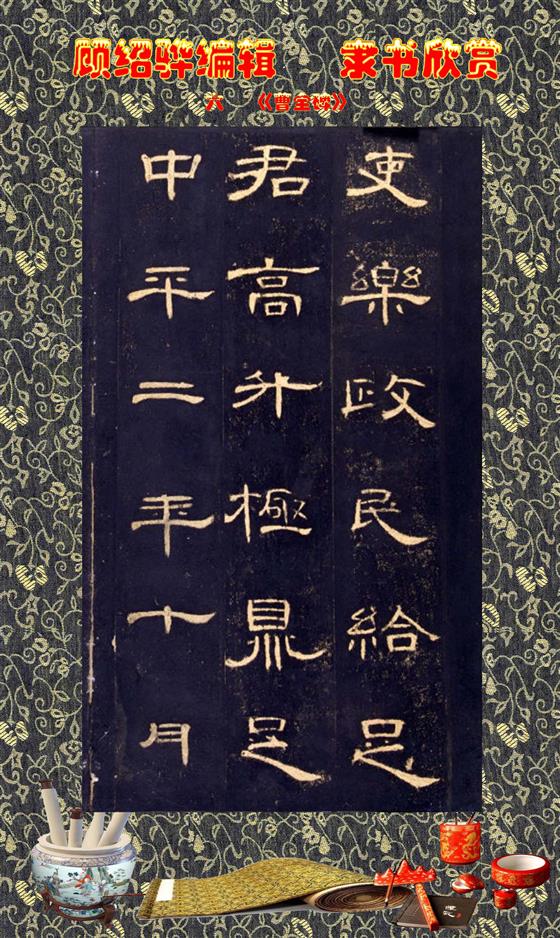 顾绍骅编辑 隶书欣赏
六 《曹全碑》
吏樂政民給足
君高升極鼎足
中平二年十月